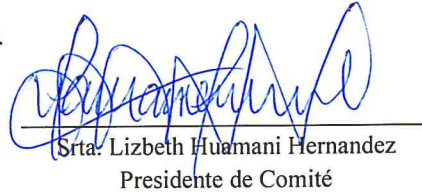 Srta. Lizbeth Huamani Hernandez
Presidente de Comité